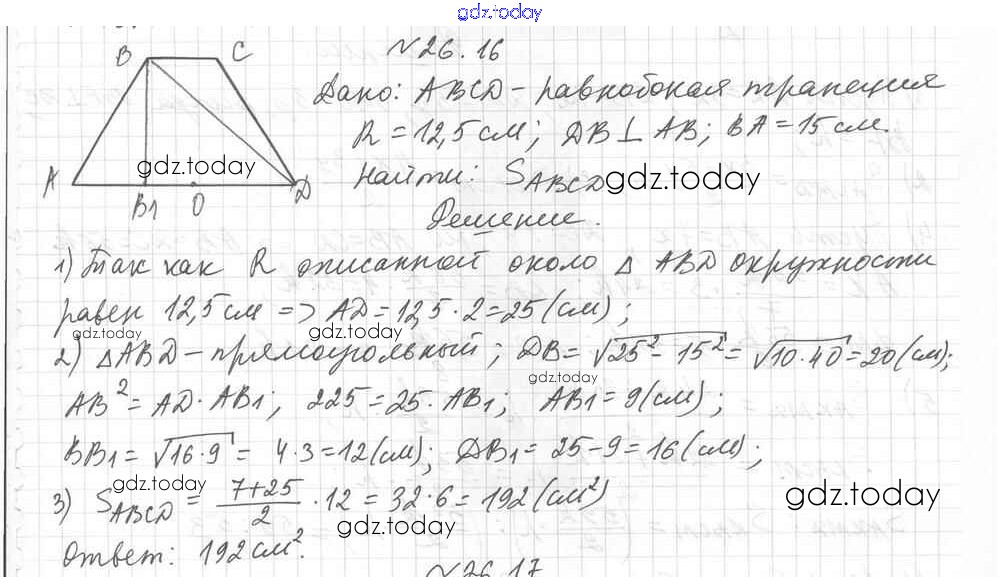 gdz.today
№26.16
B C
Дано: ABCD - равнобокая трапеция
R = 12,5 см; DB ⊥ AB; BA = 15 см.
gdz.today
A B1 O D
Найти: SABCD gdz.today
Решение.
1) Так как R описанной около △ ABD окружности
равен 12,5 см => AD = 12,5 · 2 = 25 (см);
gdz.today gdz.today
2) △ABD - прямоугольный; DB = √25² - 15² = √10·40 = 20 (см);
gdz.today
AB² = AD · AB1; 225 = 25 · AB1; AB1 = 9 (см);
BB1 = √16·9 = 4·3 = 12 (см); DB1 = 25 - 9 = 16 (см);
gdz.today gdz.today
3) SABCD = 7+25/2 · 12 = 32·6 = 192 (см²)
gdz.today
Ответ: 192 см².
№26.17